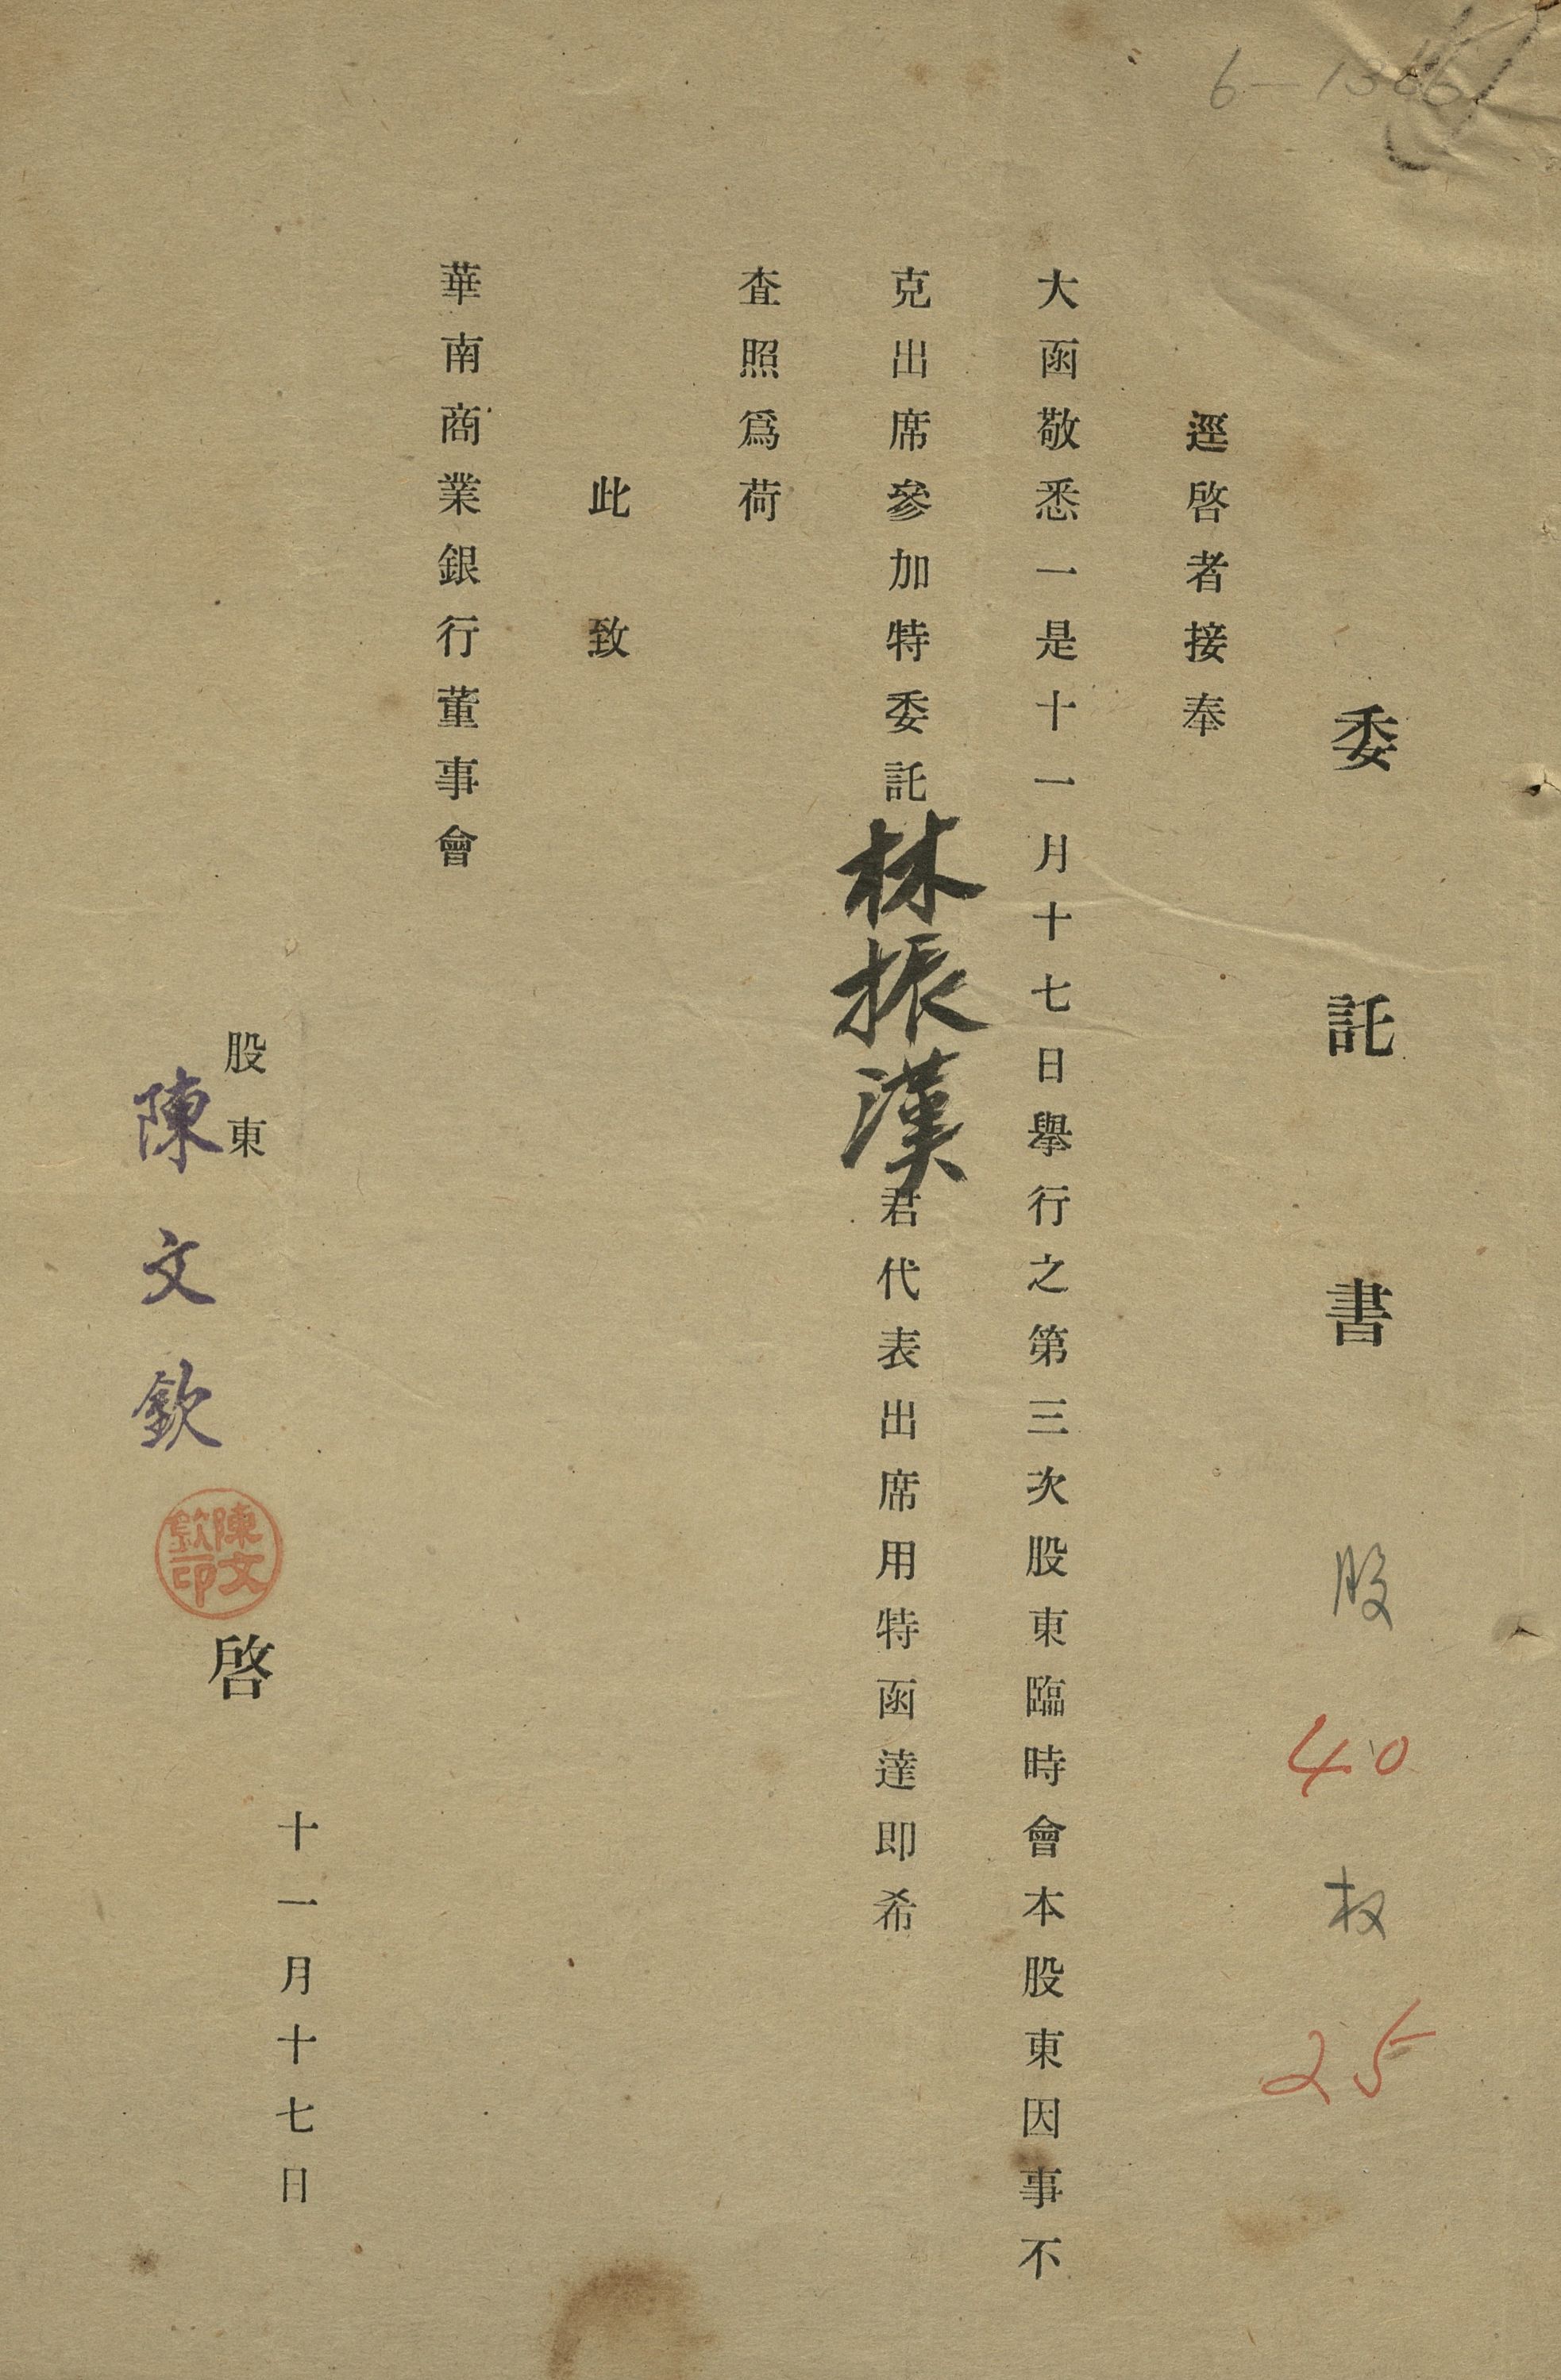 委託書 股 40 权 25
逕啓者接奉
大函敬悉一是十一月十七日舉行之第三次股東臨時會本股東因事不
克出席參加特委託林振漢君代表出席用特函達即希
查照爲荷
此致
華南商業銀行董事會
股東
陳文欽
陳文欽印
啓
十一月十七日